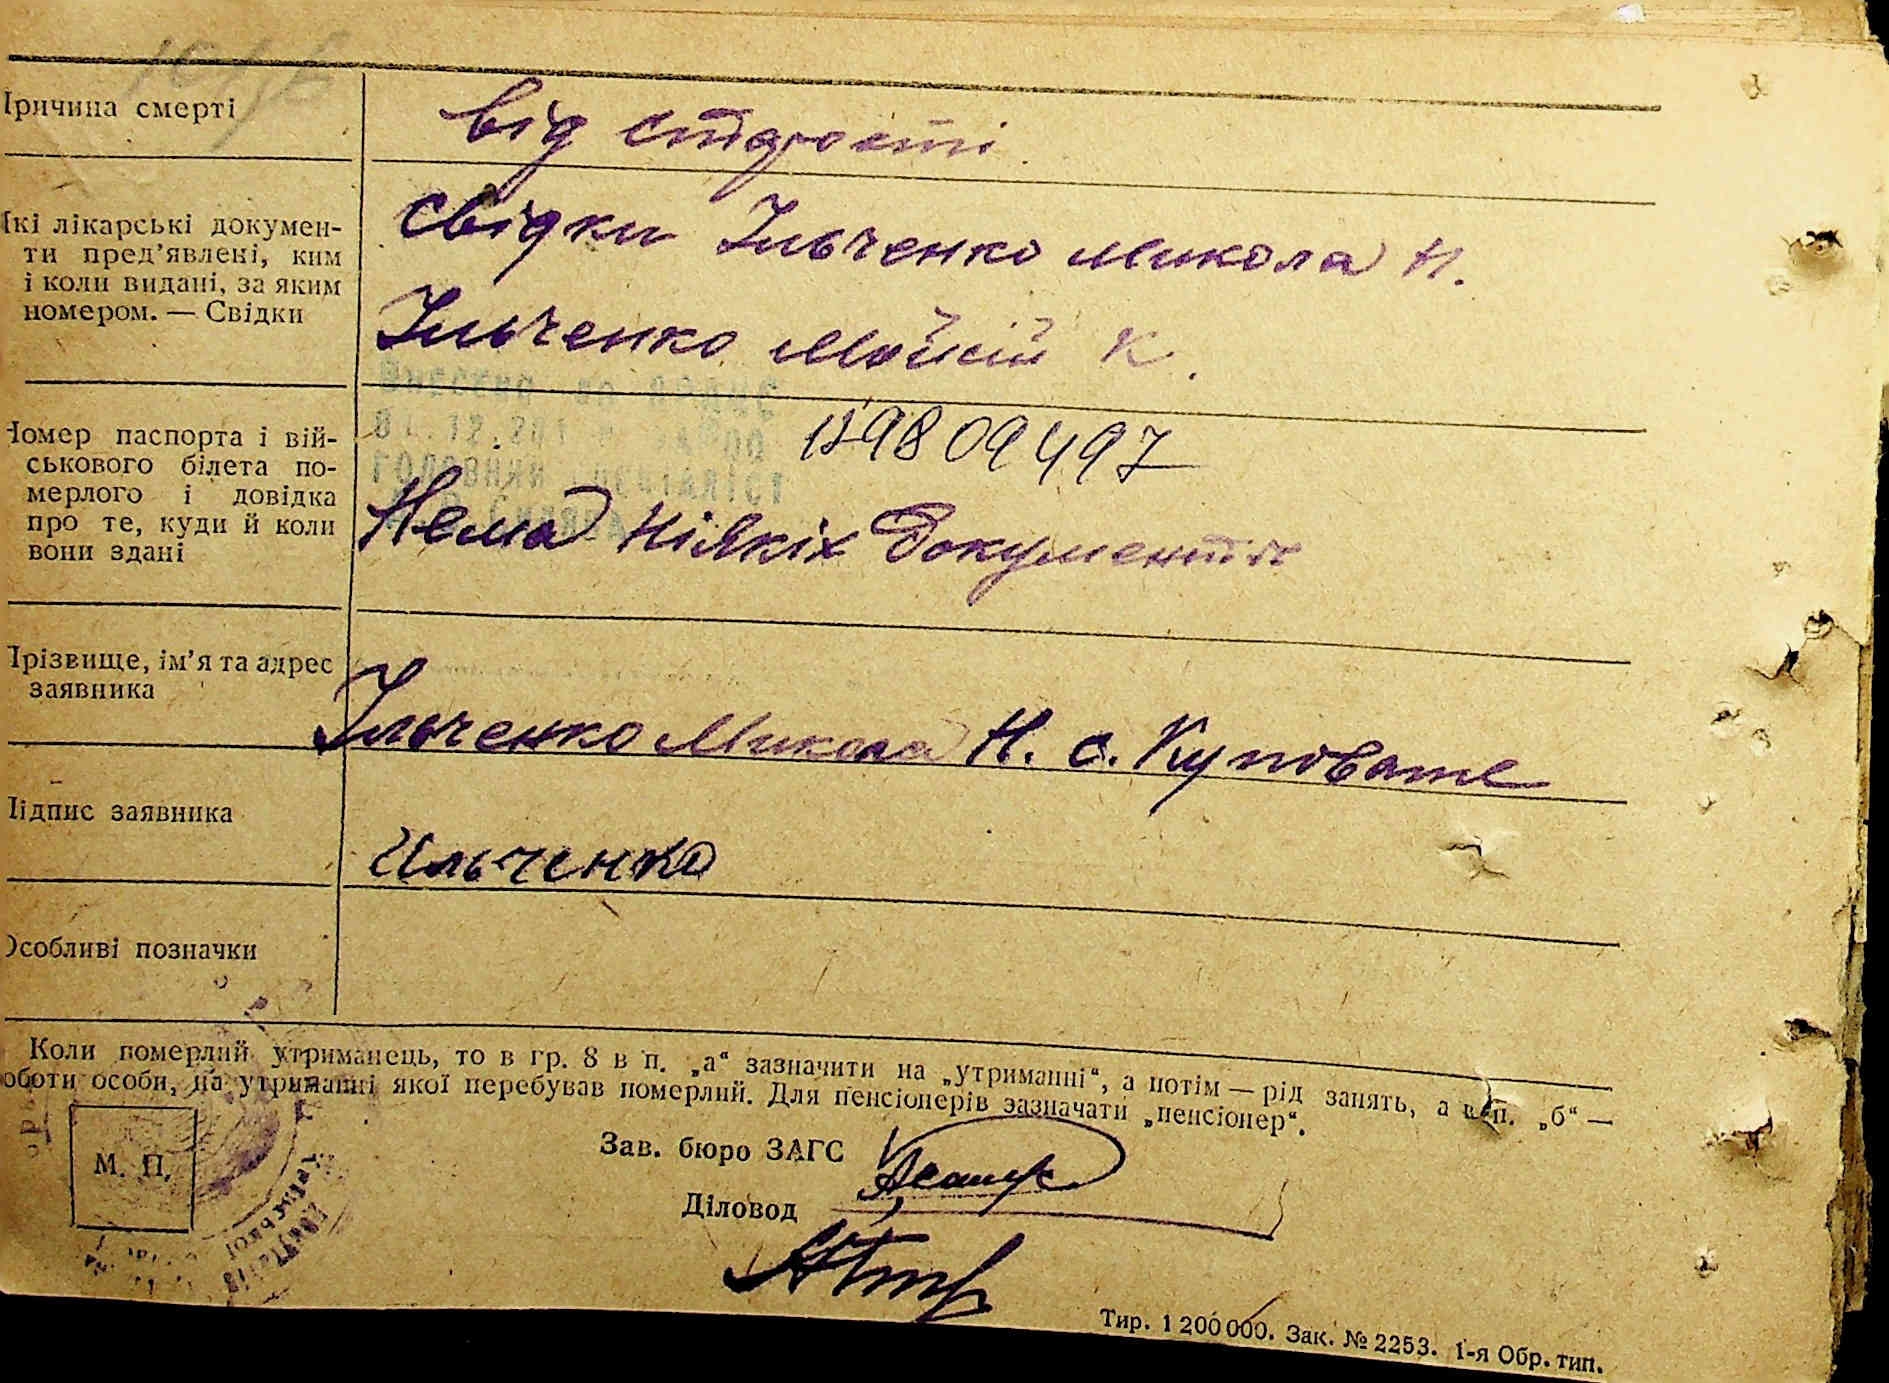 Причина смерті
від старості
Які лікарські докумен-
ти пред’явлені, ким
і коли видані, за яким
номером. — Свідки
свідки Ільченко Микола Н.
Ільченко Мойсій К.
Номер паспорта і вій-
ськового білета по-
мерлого і довідка
про те, куди й коли
вони здані
Нема ніякіх документів
Прізвище, ім’я та адрес
заявника
Ільченко Микола Н. с. Куповате
Підпис заявника
Ильченко
Особливі позначки
Коли померлий утриманець, то в гр. 8 в п. „а“ зазначити на „утриманні“, а потім — рід занять, а в п. „б“ —
роботи особи, на утриманні якої перебував померлий. Для пенсіонерів зазначати „пенсіонер“.
М. П.
Зав. бюро ЗАГС
Діловод
Тир. 1 200 000. Зак. № 2253. 1-я Обр. тип.